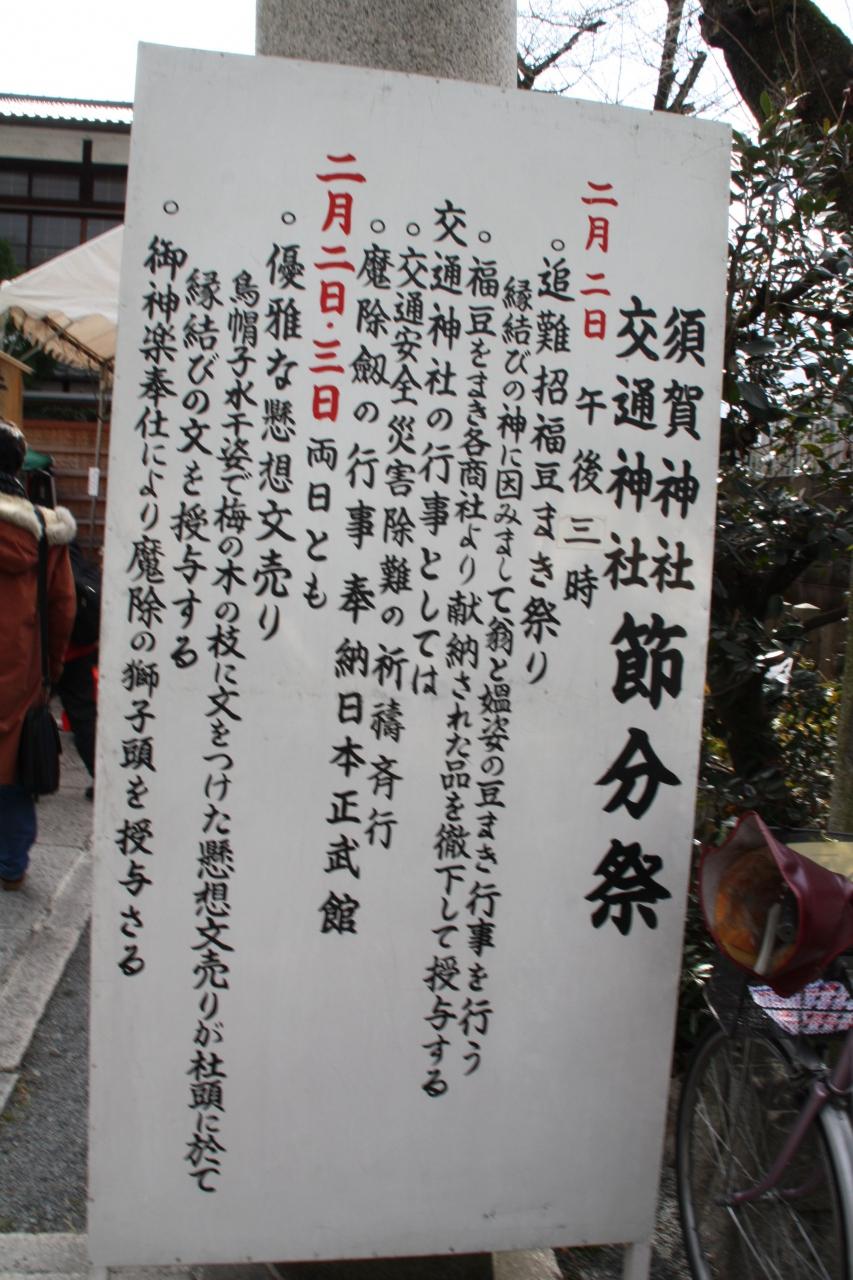 須賀神社
交通神社 節分祭
二月二日 午後三時
○追難招福豆まき祭り
縁結びの神に因みまして翁と媼姿の豆まき行事を行う
○福豆をまき各商社より献納された品を徹下して授与する
交通神社の行事としては
○交通安全災害除難の祈禱斉行
○魔除劔の行事 奉納日本正武館
二月二日・三日両日とも
○優雅な懸想文売り
烏帽子水干姿で梅の木の枝に文をつけた懸想文売りが社頭に於て
縁結びの文を授与する
○御神楽奉仕により魔除の獅子頭を授与さる